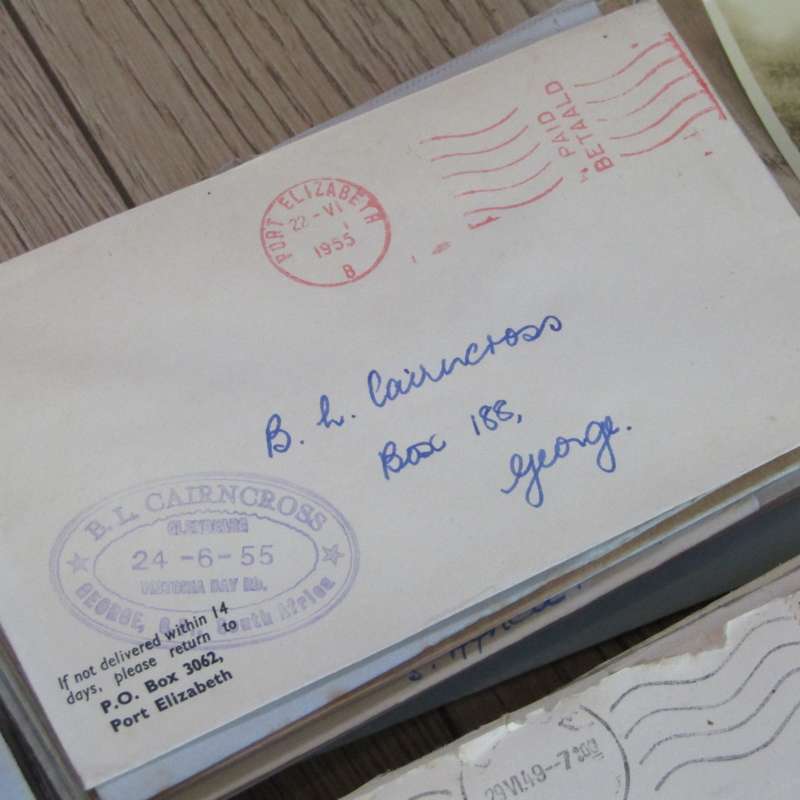 PAID
BETAALD
PORT ELIZABETH
22-VI
1955
B
B. L. Cairncross
Box 188,
George.
B. L. CAIRNCROSS
24-6-55
VICTORIA BAY RD.
GEORGE, South Africa
If not delivered within 14
days, please return to
P.O. Box 3062,
Port Elizabeth
29 VI 49-7